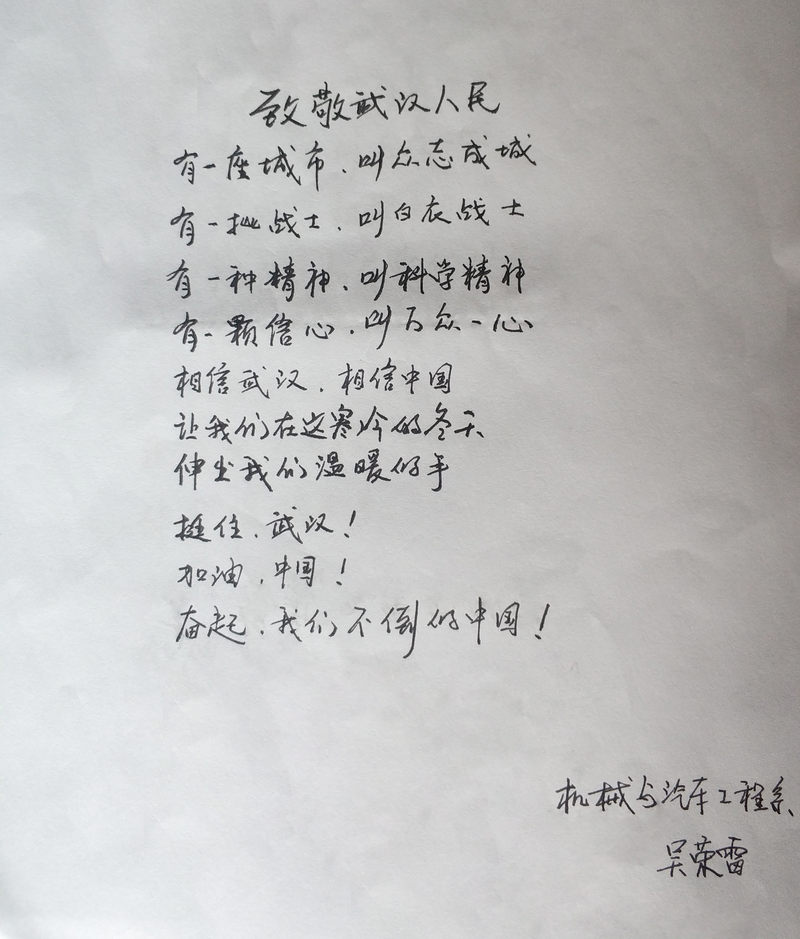 致敬武汉人民
有一座城市、叫众志成城
有一批战士、叫白衣战士
有一种精神、叫科学精神
有一颗信心、叫万众一心
相信武汉、相信中国
让我们在这寒冷的冬天
伸出我们温暖的手
挺住、武汉！
加油、中国！
奋起、我们不倒的中国！
机械与汽车工程系
吴荣雷